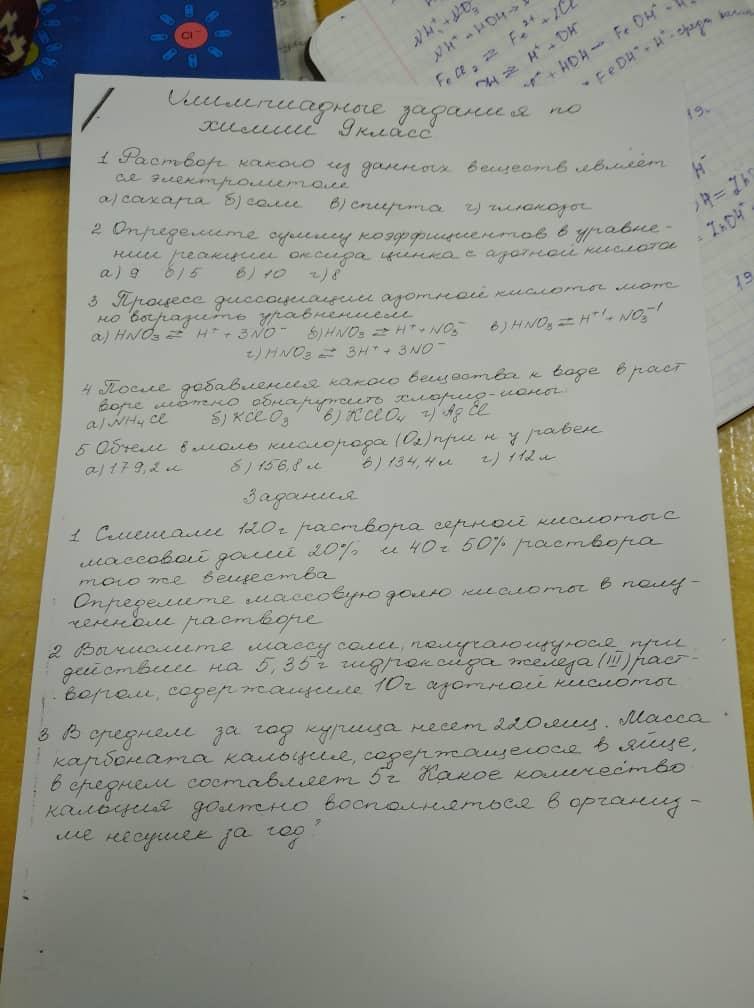 Cl⁻
NH₄⁺ + HOH →
FeCl₂ ⇄ Fe²⁺ + 2Cl
Олимпиадные задания по
химии 9 класс
1 Раствор какого из данных веществ являет
ся электрометоле
а) сахара б) соли в) спирта г) глюкозы
2 Определите сумму коэффициентов в уравне-
нии реакции оксида цинка с азотной кислота
а) 9 б) 5 в) 10 г) 8
3 Процесс диссоциации азотной кислоты мож
но выразить уравнением
а) HNO₃ ⇄ H⁺ + 3NO⁻ б) HNO₃ ⇄ H⁺ + NO₃⁻ в) HNO₃ ⇄ H⁺¹ + NO₃⁻¹
г) HNO₃ ⇄ 3H⁺ + 3NO⁻
4 После добавления какого вещества к воде в раст
воре можно обнаружить хлорид-ионы
а) NH₄Cl б) KClO₃ в) KClO₄ г) AgCl
5 Объем 8 моль кислорода (O₂) при н у равен
а) 179,2 л б) 156,8 л в) 134,4 л г) 112 л
Задания
1 Смешали 120 г раствора серной кислоты с
массовой долий 20% и 40 г 50% раствора
того же вещества
Определите массовую долю кислоты в полу-
ченном растворе
2 Вычислите массу соли, получающуюся при
действии на 5,35 г гидроксида железа (III) раст-
вором, содержащиле 10 г азотной кислоты
3 В среднем за год курица несет 220 яиц. Масса
карбоната кальция, содержащегося в яйце,
в среднем составляет 5 г Какое количество
кальция должно восполняться в организ-
ме несушек за год?